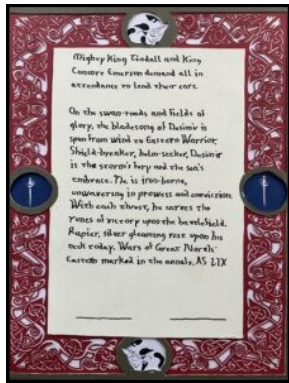 Mighty King Tindall and King
Consort Emerson demand all in
attendance to lend their ears.
On the swan-roads and fields of
glory, the bladesong of Dasimir is
spun from wind to Eastern Warrior.
Shield-breaker, helm-seeker, Dasimir
is the storm's fury and the sea's
embrace. He is iron-borne,
unwavering in prowess and conviction.
With each thrust, he carves the
runes of victory upon the battlefield.
Rapier, silver gleaming rest upon his
neck today. Wars of Great North
Eastern marked in the annals, AS LIX